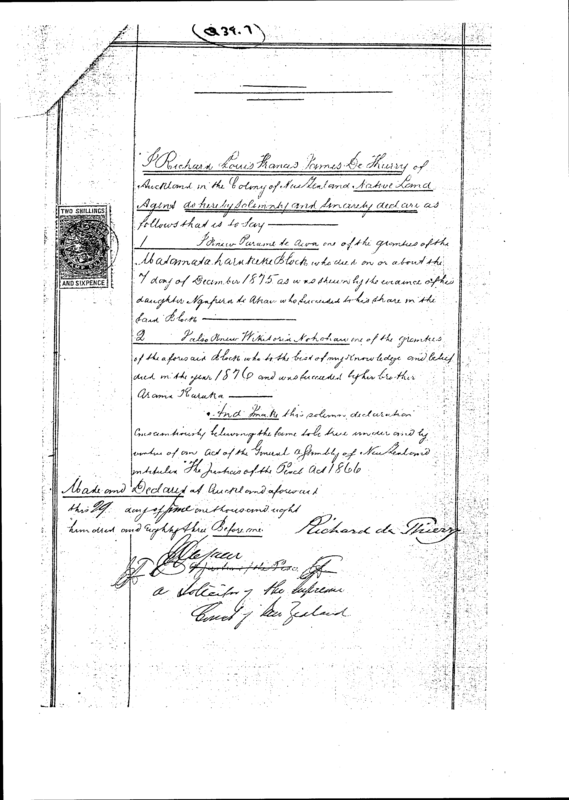 (Q 39.7)
I Richard Louis Francis James De Thierry of
Auckland in the Colony of New Zealand Native Land
Agent do hereby solemnly and sincerely declare as
follows that is to say
TWO SHILLINGS
AND SIXPENCE
1 I knew Parame te one of the grantees of the
Block who died on or about the
7 day of December 1875 as was shewn by the evidence of his
daughter Ngapera te who succeeded to his share in the
said Block
2 I also knew Wikitoria one of the grantees
of the aforesaid Block who to the best of my knowledge and belief
died in the year 1876 and was succeeded by her brother
Arama Karaka
And I make this solemn declaration
conscientiously believing the same to be true under and by
virtue of an Act of the General Assembly of New Zealand
intituled "The Justices of the Peace Act 1866
Made and Declared at Auckland aforesaid
this 29 day of one thousand and eight
hundred and eighty three Before me
Richard de Thierry
a Solicitor of the Supreme
Court of New Zealand